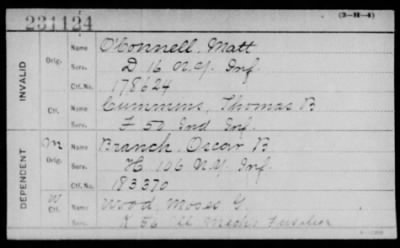 231124
(3-H-4)
INVALID
Orig. Name O'Connell, Matt
Serv. D 16 N.Y. Inf.
Ctf. No. 178624
Ctf. Name Cummins, Thomas B
Serv. F 50 Ind Inf.
DEPENDENT
Orig. Name Branch, Oscar B
Serv. H 106 N.Y. Inf.
Ctf. No. 183370
W Ctf. Name Wood, Moses G.
Serv. K 56 Ill Mech's Fusilier